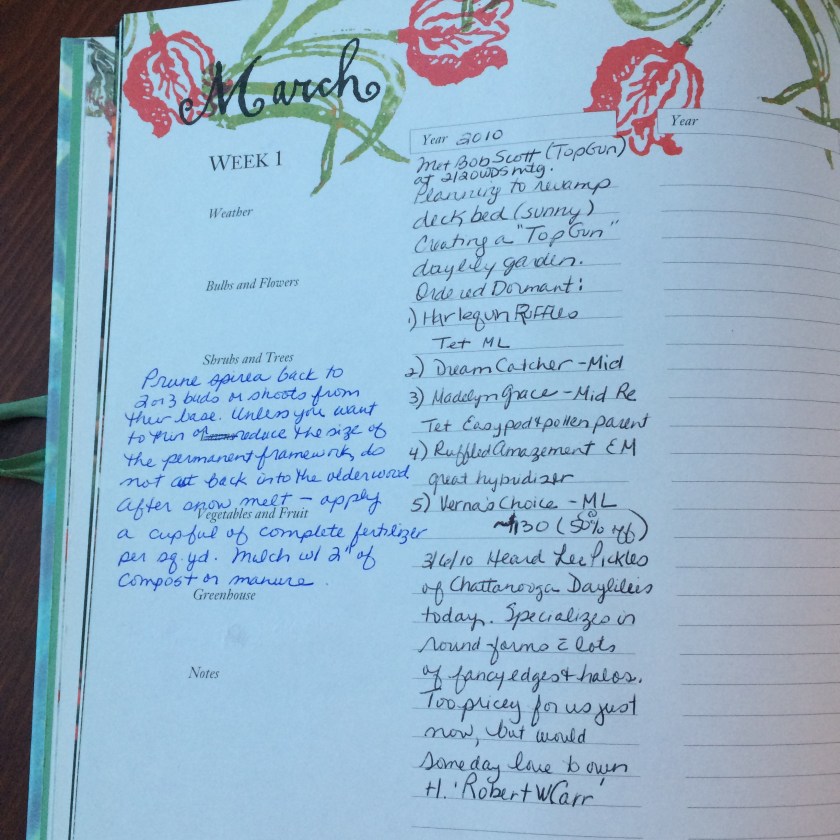 March
WEEK 1
Weather
Bulbs and Flowers
Shrubs and Trees
Prune spirea back to
2 or 3 buds or shoots from
their base. Unless you want
to thin or reduce the size of
the permanent framework, do
not cut back into the older wood
After snow melt – apply
Vegetables and Fruit
a cupful of complete fertilizer
per sq. yd. Mulch w/ 2" of
compost or manure.
Greenhouse
Notes
Year 2010
Met Bob Scott (TopGun)
at 2/20 WDS mtg.
Planning to revamp
deck bed (sunny)
Creating a "Top Gun"
daylily garden.
Ordered Dormant:
1) Harlequin Ruffles
Tet ML
2) Dream Catcher - Mid
3) Madelyn Grace - Mid Re
Tet Easy pod & pollen parent
4) Ruffled Amazement EM
great hybridizer
5) Verna's Choice - ML
130 (50% off)
3/6/10 Heard Lee Pickles
of Chattanooga Daylilies
today. Specializes in
round forms c̄ lots
of fancy edges & halos.
Too pricey for us just
now, but would
someday love to own
H. 'Robert W Carr'
Year